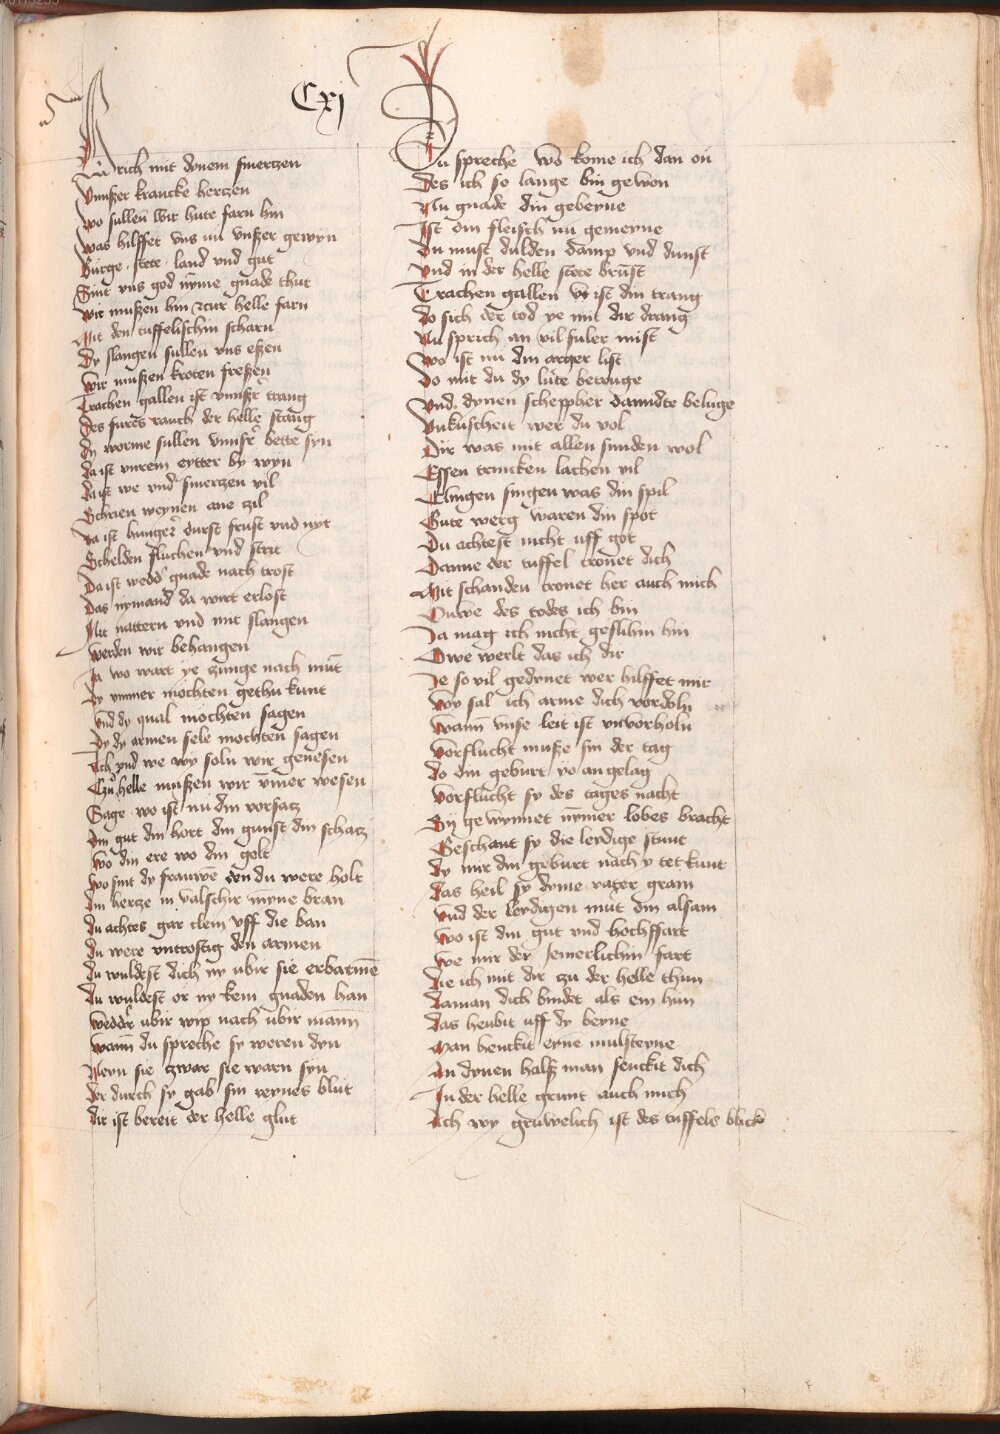 Cxj
rich mit dynem smertzen
Vnnßer krancke hertzen
Wo sullen wir hute farn hin
Was hilffet vns nu vnßer gewyn
Burge stete land vnd gut
Sint vns god nyme gnade thut
Wir mußen hin zcur helle farn
Mit den tuffelischin scharn
Dy slangen sullen vns eßen
Wir mußen kroten freßen
Trachen gallen ist vnnßer trang
Des fures rauch der helle stang
Dy worme sullen vnnßr bette syn
Da ist vnrem eytter by wyn
Da ist we vnd smertzen vil
Schrien weynen ane zil
Da ist hunger durst frust vnd nyt
Schelden fluchen vnd strit
Da ist wedd gnade nach trost
Das nymand da wirt erlost
Mit nattern vnd mit slangen
Werden wir behangen
Ja wo wart ye zunge nach mut
Dy ymmer mochten gethu kunt
Vnd dy qual mochten sagen
Dy dy armen sele mochten sagen
Ach vnd we wy soln wir genesen
Czu helle mußen wir vmer wesen
Sage wo ist nu din vorsacz
Din gut din hort din gunst din schacz
Wo din ere wo din gelt
Wo sint dy frauwe den du were holt
Din hertze in valschir mynne bran
Du achtes gar clein vff die ban
Du were vntrostig den armen
Du wuldest dich ny ubir sie erbarme
Du wuldest or ny kein gnaden han
Wedder ubir wip nach ubir mann
Wann du spreche sy weren dyn
Neyn sie zware sie warn syn
Der durch sy gab sin reynes blut
Dir ist bereit der helle glut
Du spreche wo kome ich dan on
Des ich so lange bin gewon
Nu gnade din gebeyne
Ist din fleisch nu gemeyne
Du must dulden damp vnd dunst
Vnd in der helle stete brust
Trachen gallen ist din trang
Do sich der tod ye mit dir drang
Nu sprich an vil fuler mist
Wo ist nu din arger list
Do mit du dy lute betruge
Vnd dynen scheppher dannocte beluge
Vnkuscheit wer du vol
Dir was mit allen sunden wol
Essen trincken lachen vil
Clingen singen was din spil
Gute werg waren din spot
Du achtest nicht uff got
Danne der tuffel cronet dich
Mit schanden cronet her auch mich
Ouwe des todes ich bin
Ja mag ich nicht geflihin hin
Owe werlt das ich dir
Je so vil gedynet wer hilffet mir
Wy sal ich arme dich vordoln
Wann vnse leit ist vnvorholn
Vorflucht muße sin der tag
Do din geburt yo angelag
Vorflucht sy des tages nacht
Dy gewynnet nymer lobes bracht
Geschant sy die leydige stunt
Dy mir din geburt nach y tet kunt
Das heil sy dyme vater gram
Vnd der leydigen mut din alsam
Wo ist din gut vnd hochffart
We mir der jemerlichin fart
Die ich mit dir zu der helle thun
Daman dich bindet als ein hun
Das heubit uff dy beyne
Man henckit eyne mulsteyne
An dynen halß man senckit dich
In der helle grunt auch mich
Ach wy gruwelich ist des tuffels blick